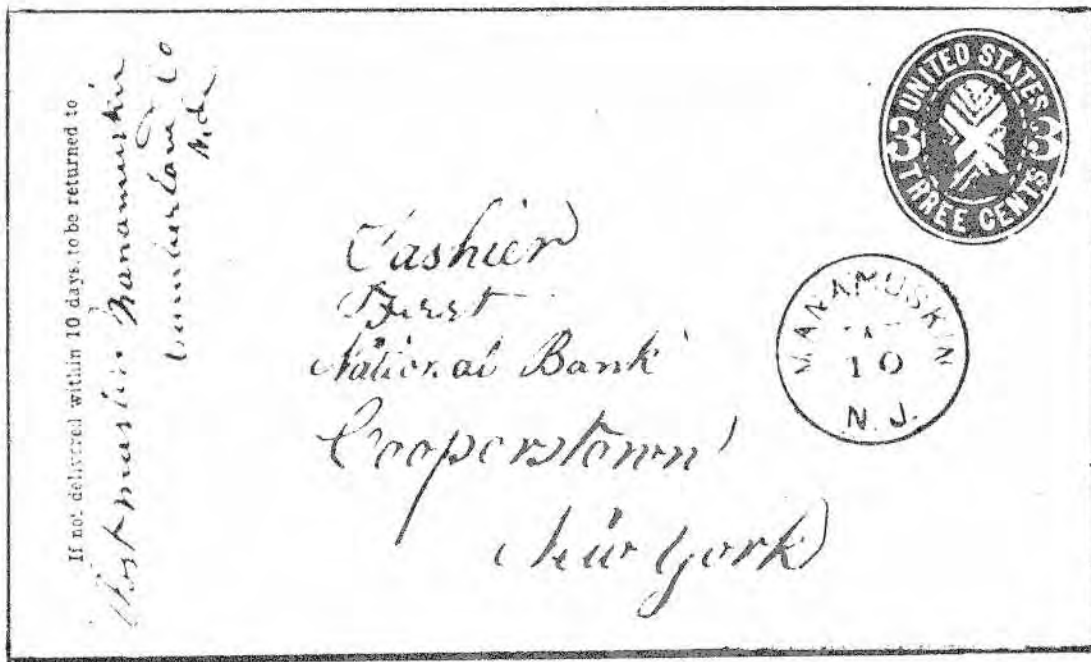 If not delivered within 10 days, to be returned to
Postmaster Manamuskin
Cumberland Co
N.J.
UNITED STATES
3 3
THREE CENTS
MANAMUSKIN
10
N. J.
Cashier
First
National Bank
Cooperstown
New York